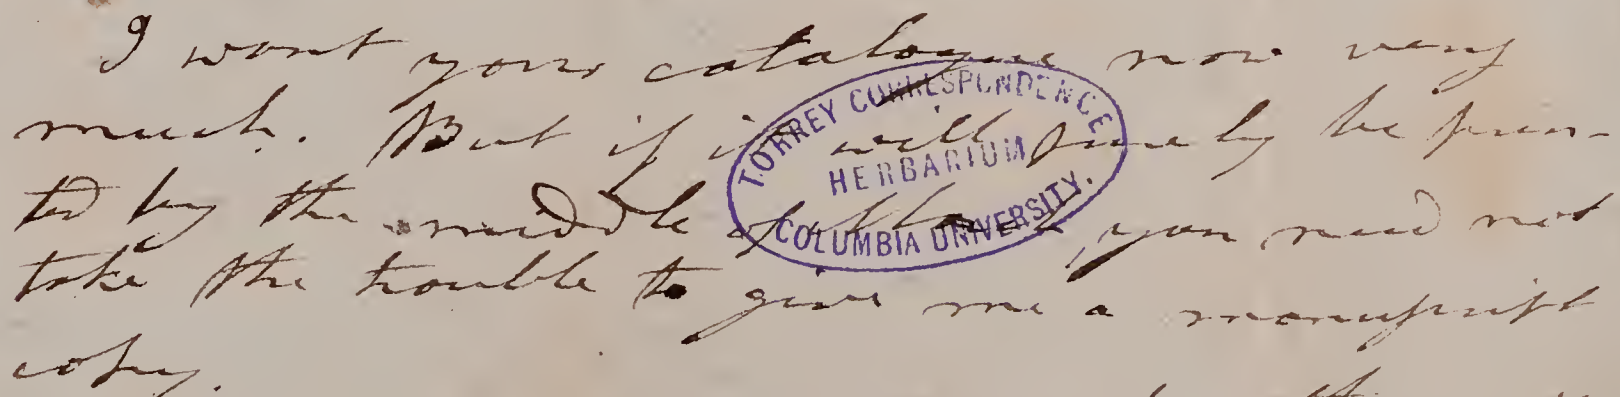 I want your catalogue now very
much. But if it will surely be prin-
ted by the middle of March, you need not
take the trouble to give me a manuscript
copy.
TORREY CORRESPONDENCE
HERBARIUM
COLUMBIA UNIVERSITY.